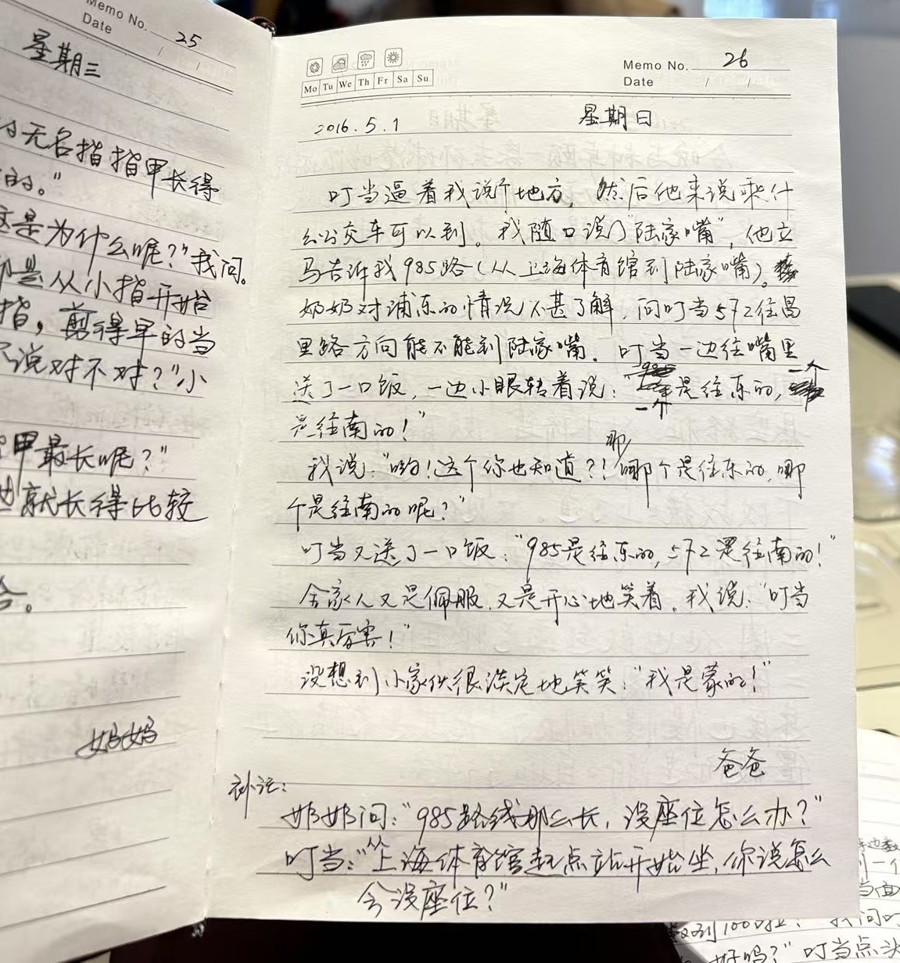 Memo No. 25
Date / /
星期三
无名指指甲长得
的。”
这是为什么呢?”我问。
是从小指开始
指，剪得早的当
说对不对?”小
甲最长呢?”
就长得比较
合。
妈妈
Mo Tu We Th Fr Sa Su
Memo No. 26
Date / /
2016.5.1 星期日
叮当逼着我说个地方，然后他来说乘什
么公交车可以到。我随口说了“陆家嘴”，他立
马告诉我985路(从上海体育馆到陆家嘴)。
奶奶对浦东的情况不甚了解，问叮当572往昌
里路方向能不能到陆家嘴。叮当一边往嘴里
送了一口饭，一边小眼转着说：“一个是往东的，一个
是往南的！”
我说：“哟！这个你也知道?！那哪个是往东的，哪
个是往南的呢?”
叮当又送了一口饭：“985是往东的，572是往南的！”
全家人又是佩服，又是开心地笑着。我说：“叮当
你真厉害！”
没想到小家伙很淡定地笑笑：“我是蒙的！”
爸爸
补记：
奶奶问：“985路线那么长，没座位怎么办?”
叮当：“从上海体育馆起点站开始坐，你说怎么
会没座位?”
到一个
当面
数到100
我问叮
好吗?”叮当点头